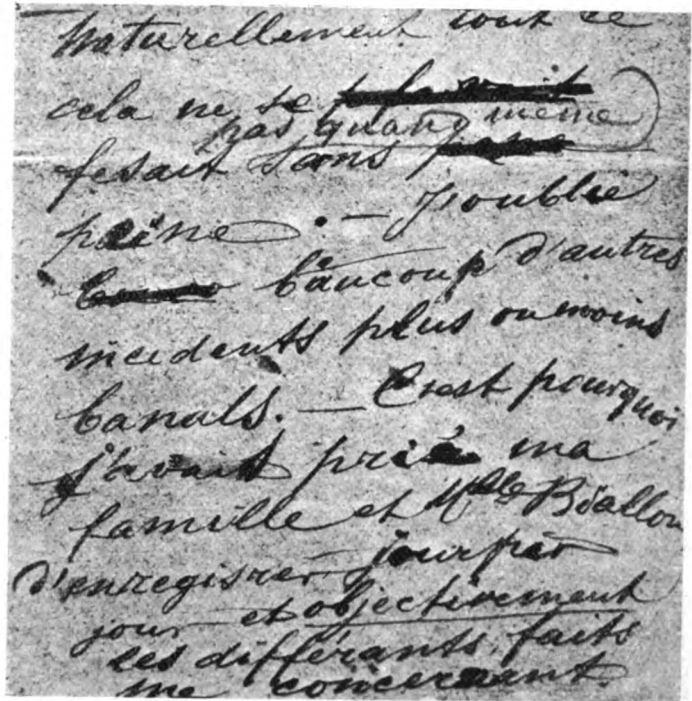 Naturellement tout ce
cela ne se
pas quand même
fesait sans
peine. — J'oublie
baucoup d'autres
incidents plus ou moins
banals. — C'est pourquoi
j'avait priée ma
famille et Mlle Biallou
d'enregisrer jour par
jour et objectivement
les différants faits
me concernant.